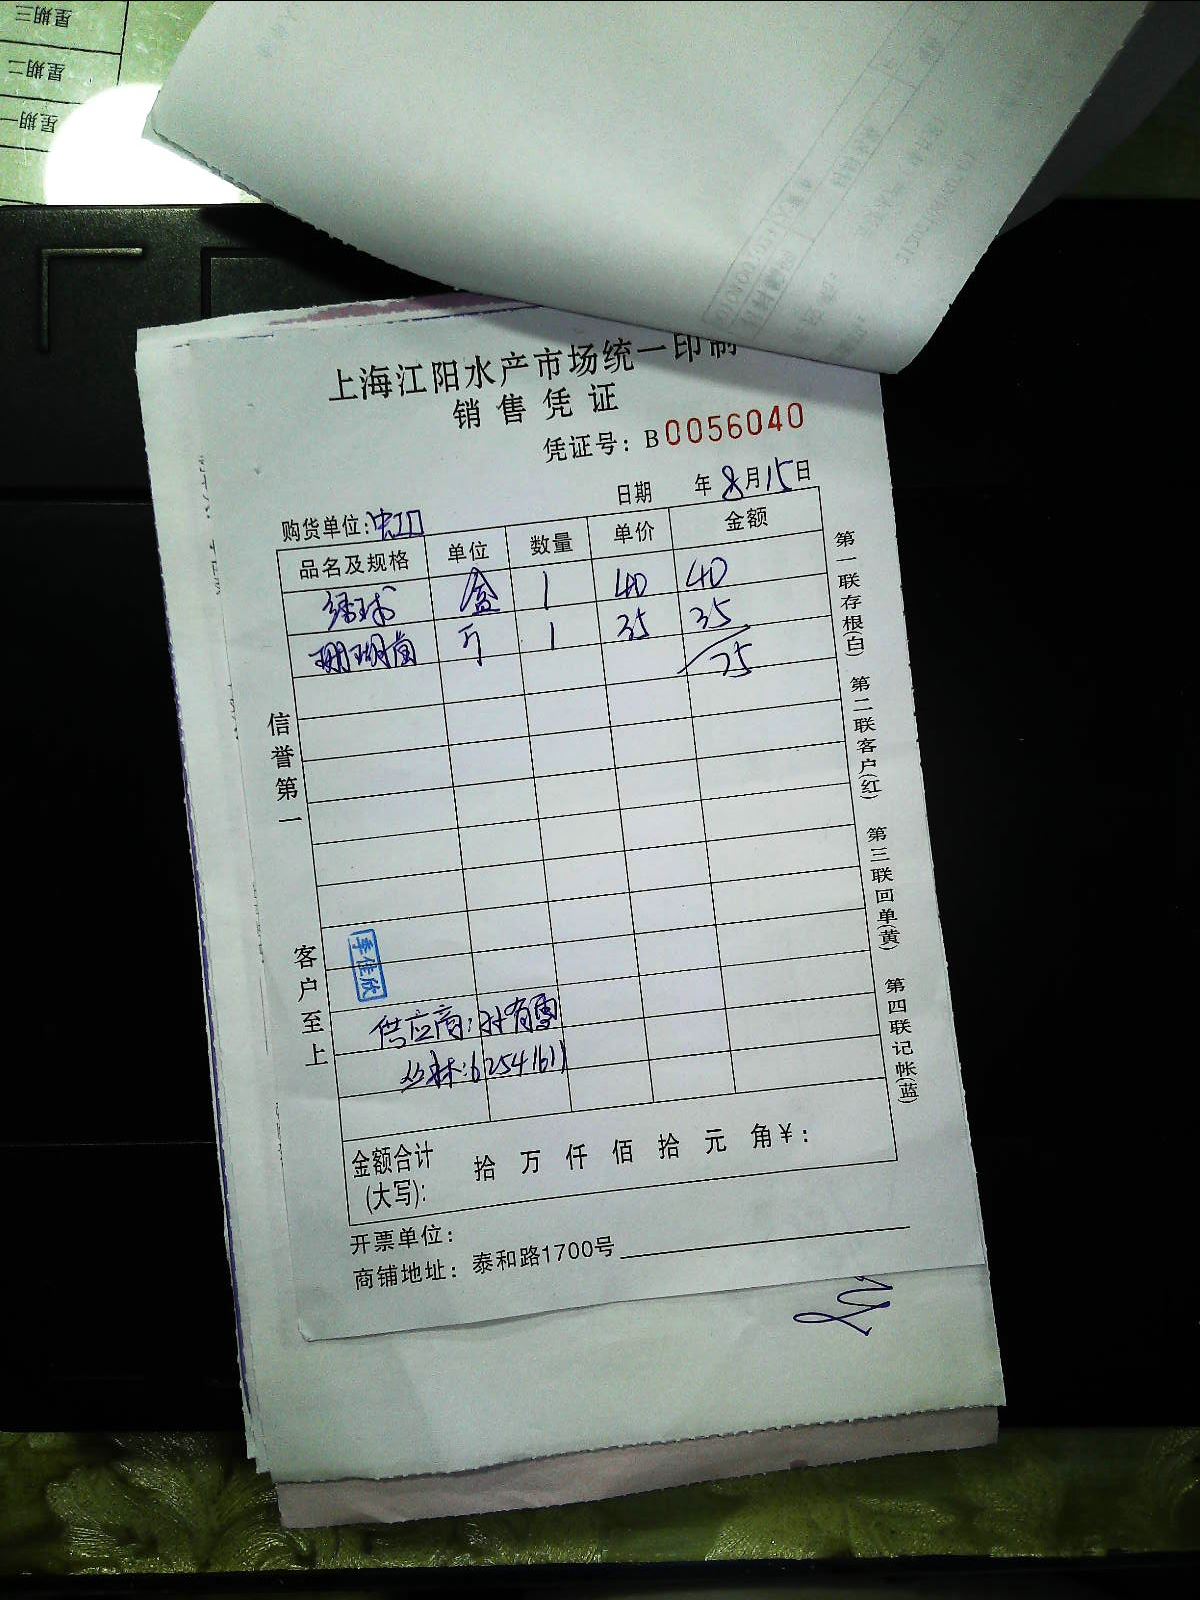 星期三
星期二
星期一
上海江阳水产市场统一印制
销售凭证
凭证号：B0056040
日期 年8月15日
购货单位：虬江
品名及规格 单位 数量 单价 金额
绿球 盒 1 40 40
珊瑚菌 斤 1 35 35
75
信誉第一
客户至上
李佳欣
供应商：孙有雪
丛林：62541611
金额合计(大写)： 拾 万 仟 佰 拾 元 角 ¥：
开票单位：
商铺地址：泰和路1700号
第一联存根(白) 第二联客户(红) 第三联回单(黄) 第四联记帐(蓝)